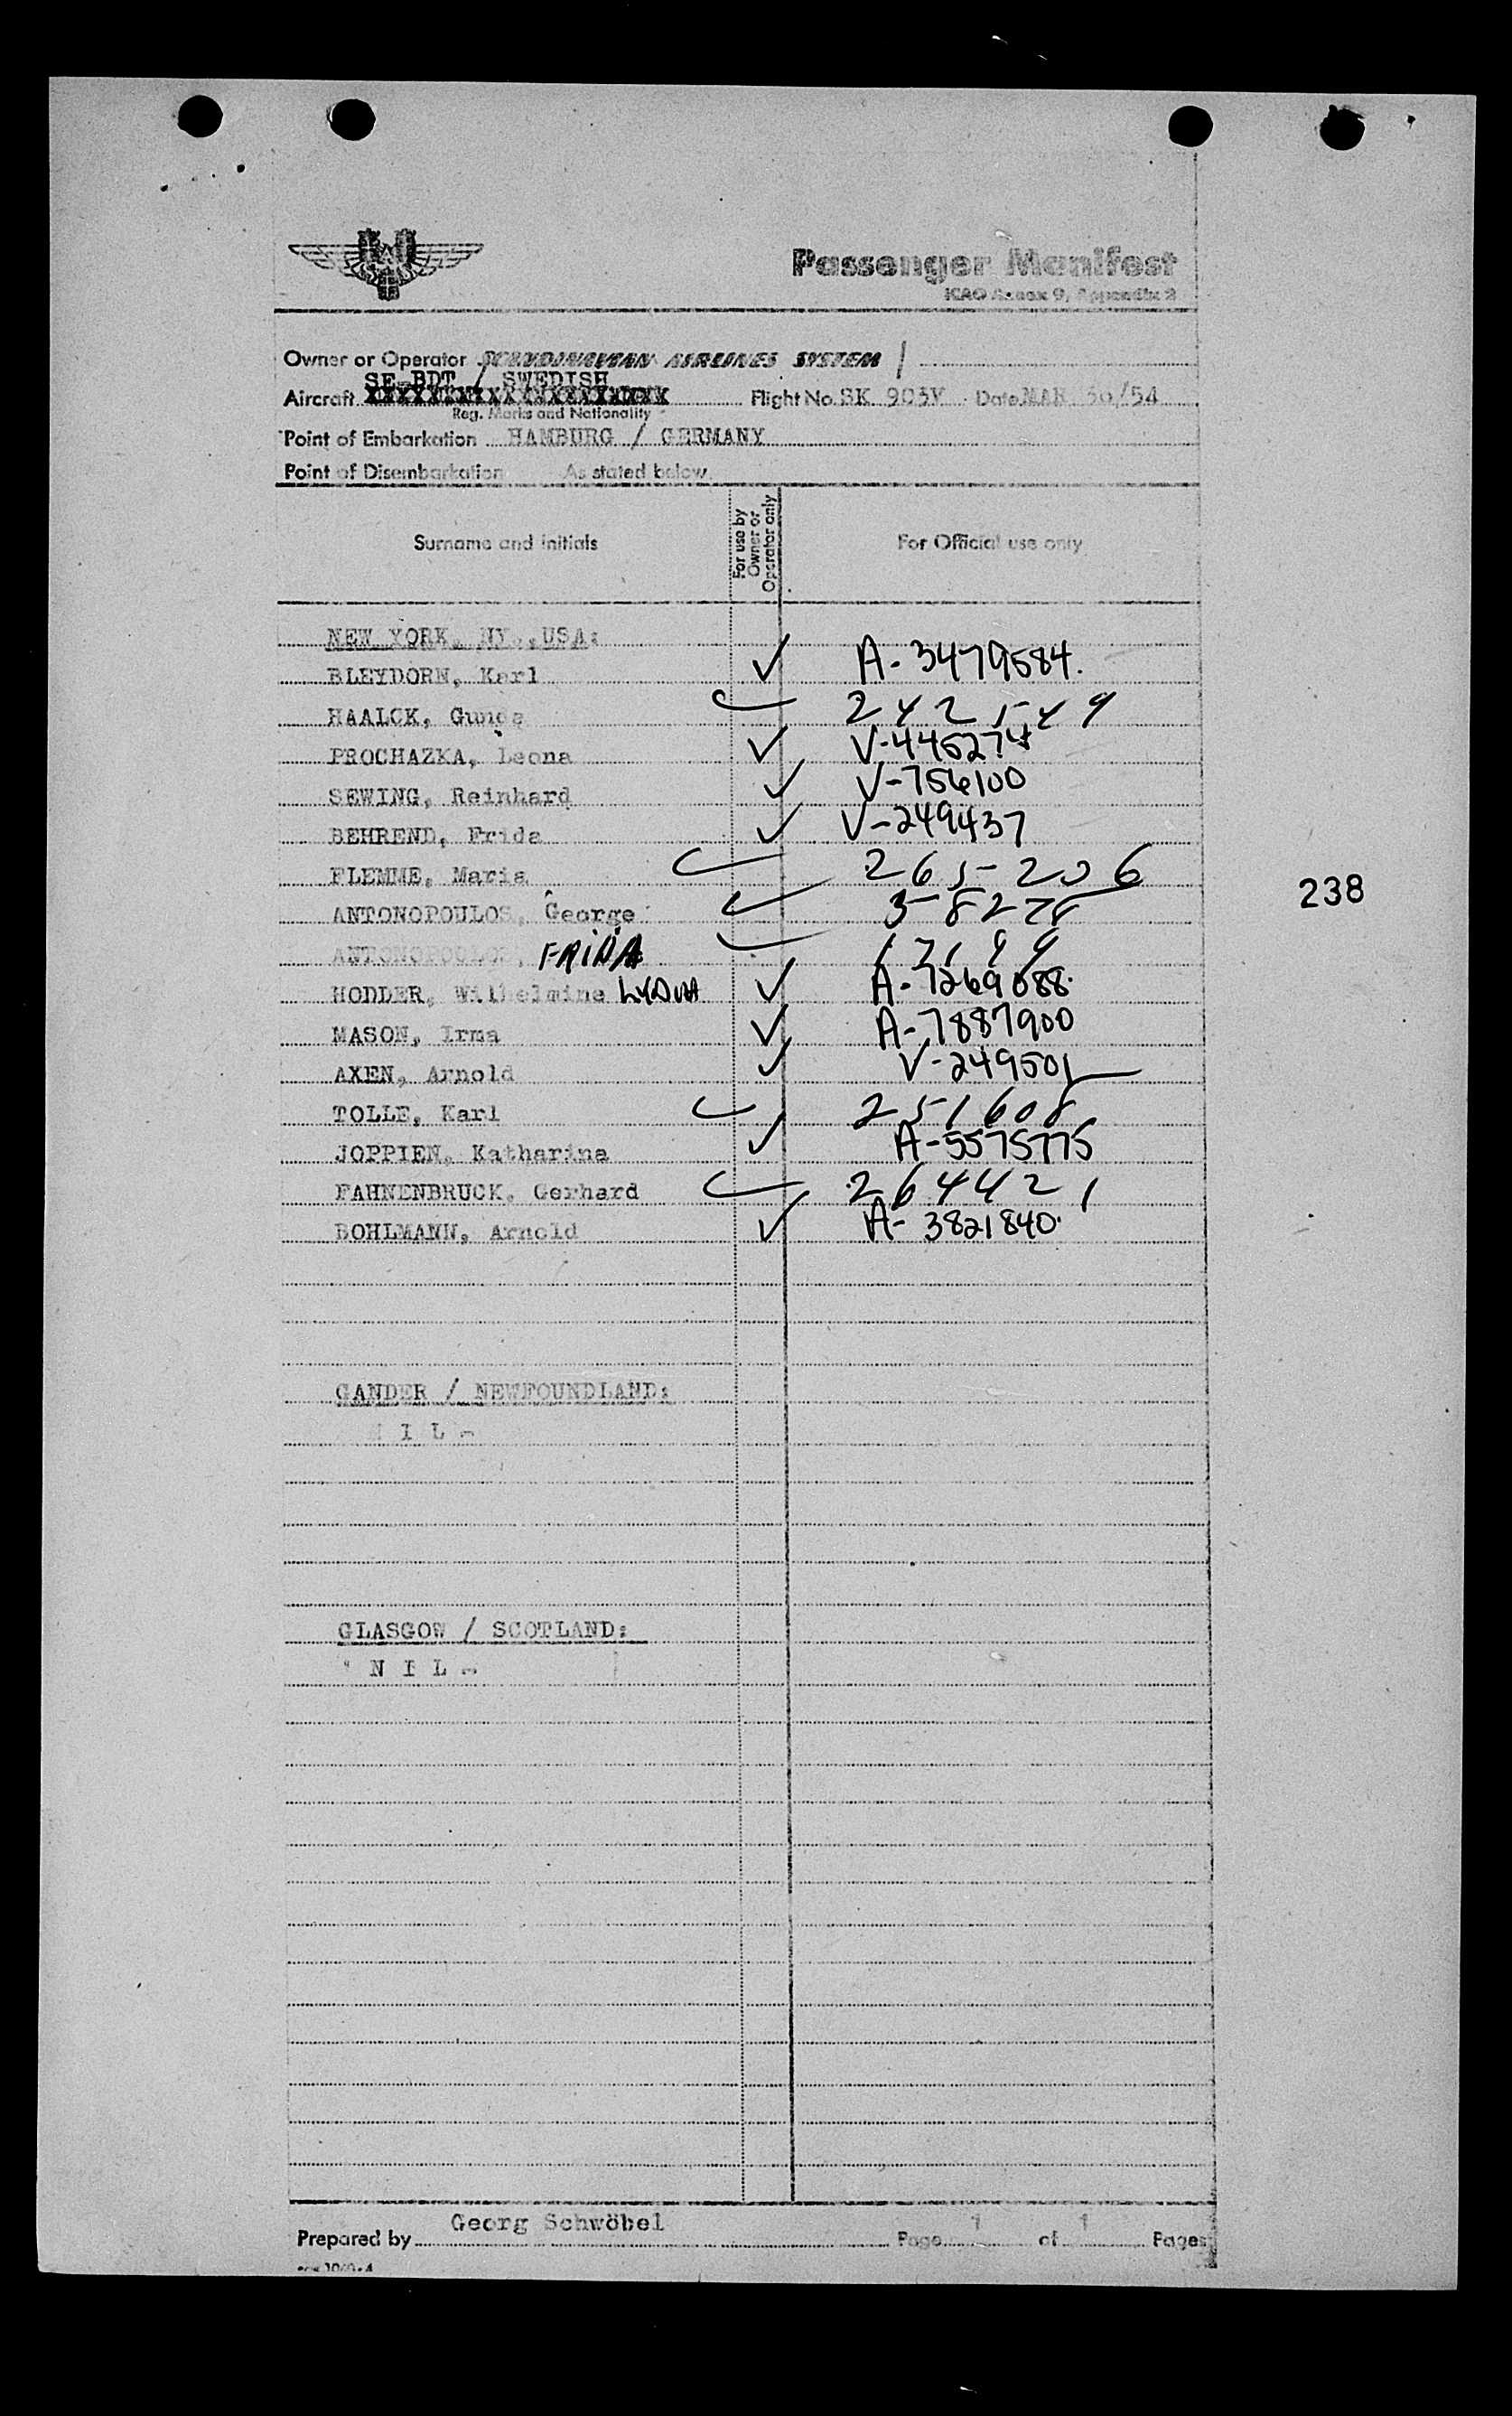 Passenger Manifest
ICAO Annex 9, Appendix 2
Owner or Operator SCANDINAVIAN AIRLINES SYSTEM /
SE-BDT / SWEDISH
Aircraft Flight No. SK 903V Date MAR 30/54
Reg. Marks and Nationality
Point of Embarkation HAMBURG / GERMANY
Point of Disembarkation As stated below
Surname and initials For use by Owner or Operator only For Official use only
NEW YORK, NY.,USA:
BLEYDORN, Karl ✓ A-3479584.
HAALCK, Gunda ✓ 242549
PROCHAZKA, Leona ✓ V-445274
SEWING, Reinhard ✓ V-756100
BEHREND, Frida ✓ V-249437
FLEMME, Maria ✓ 265206
ANTONOPOULOS, George ✓ 58278
ANTONOPOULOS, FRIDA ✓
HODLER, Wilhelmine LYDIA ✓ A-7269088.
MASON, Irma ✓ A-7887900
AXEN, Arnold ✓ V-249501
TOLLE, Karl ✓ 251608
JOPPIEN, Katharina ✓ A-5575775
FAHNENBRUCK, Gerhard ✓ 264421
BOHLMANN, Arnold ✓ A-3821840.
238
GANDER / NEWFOUNDLAND:
N I L -
GLASGOW / SCOTLAND:
- N I L -
Prepared by Georg Schwöbel Page 1 of 1 Pages